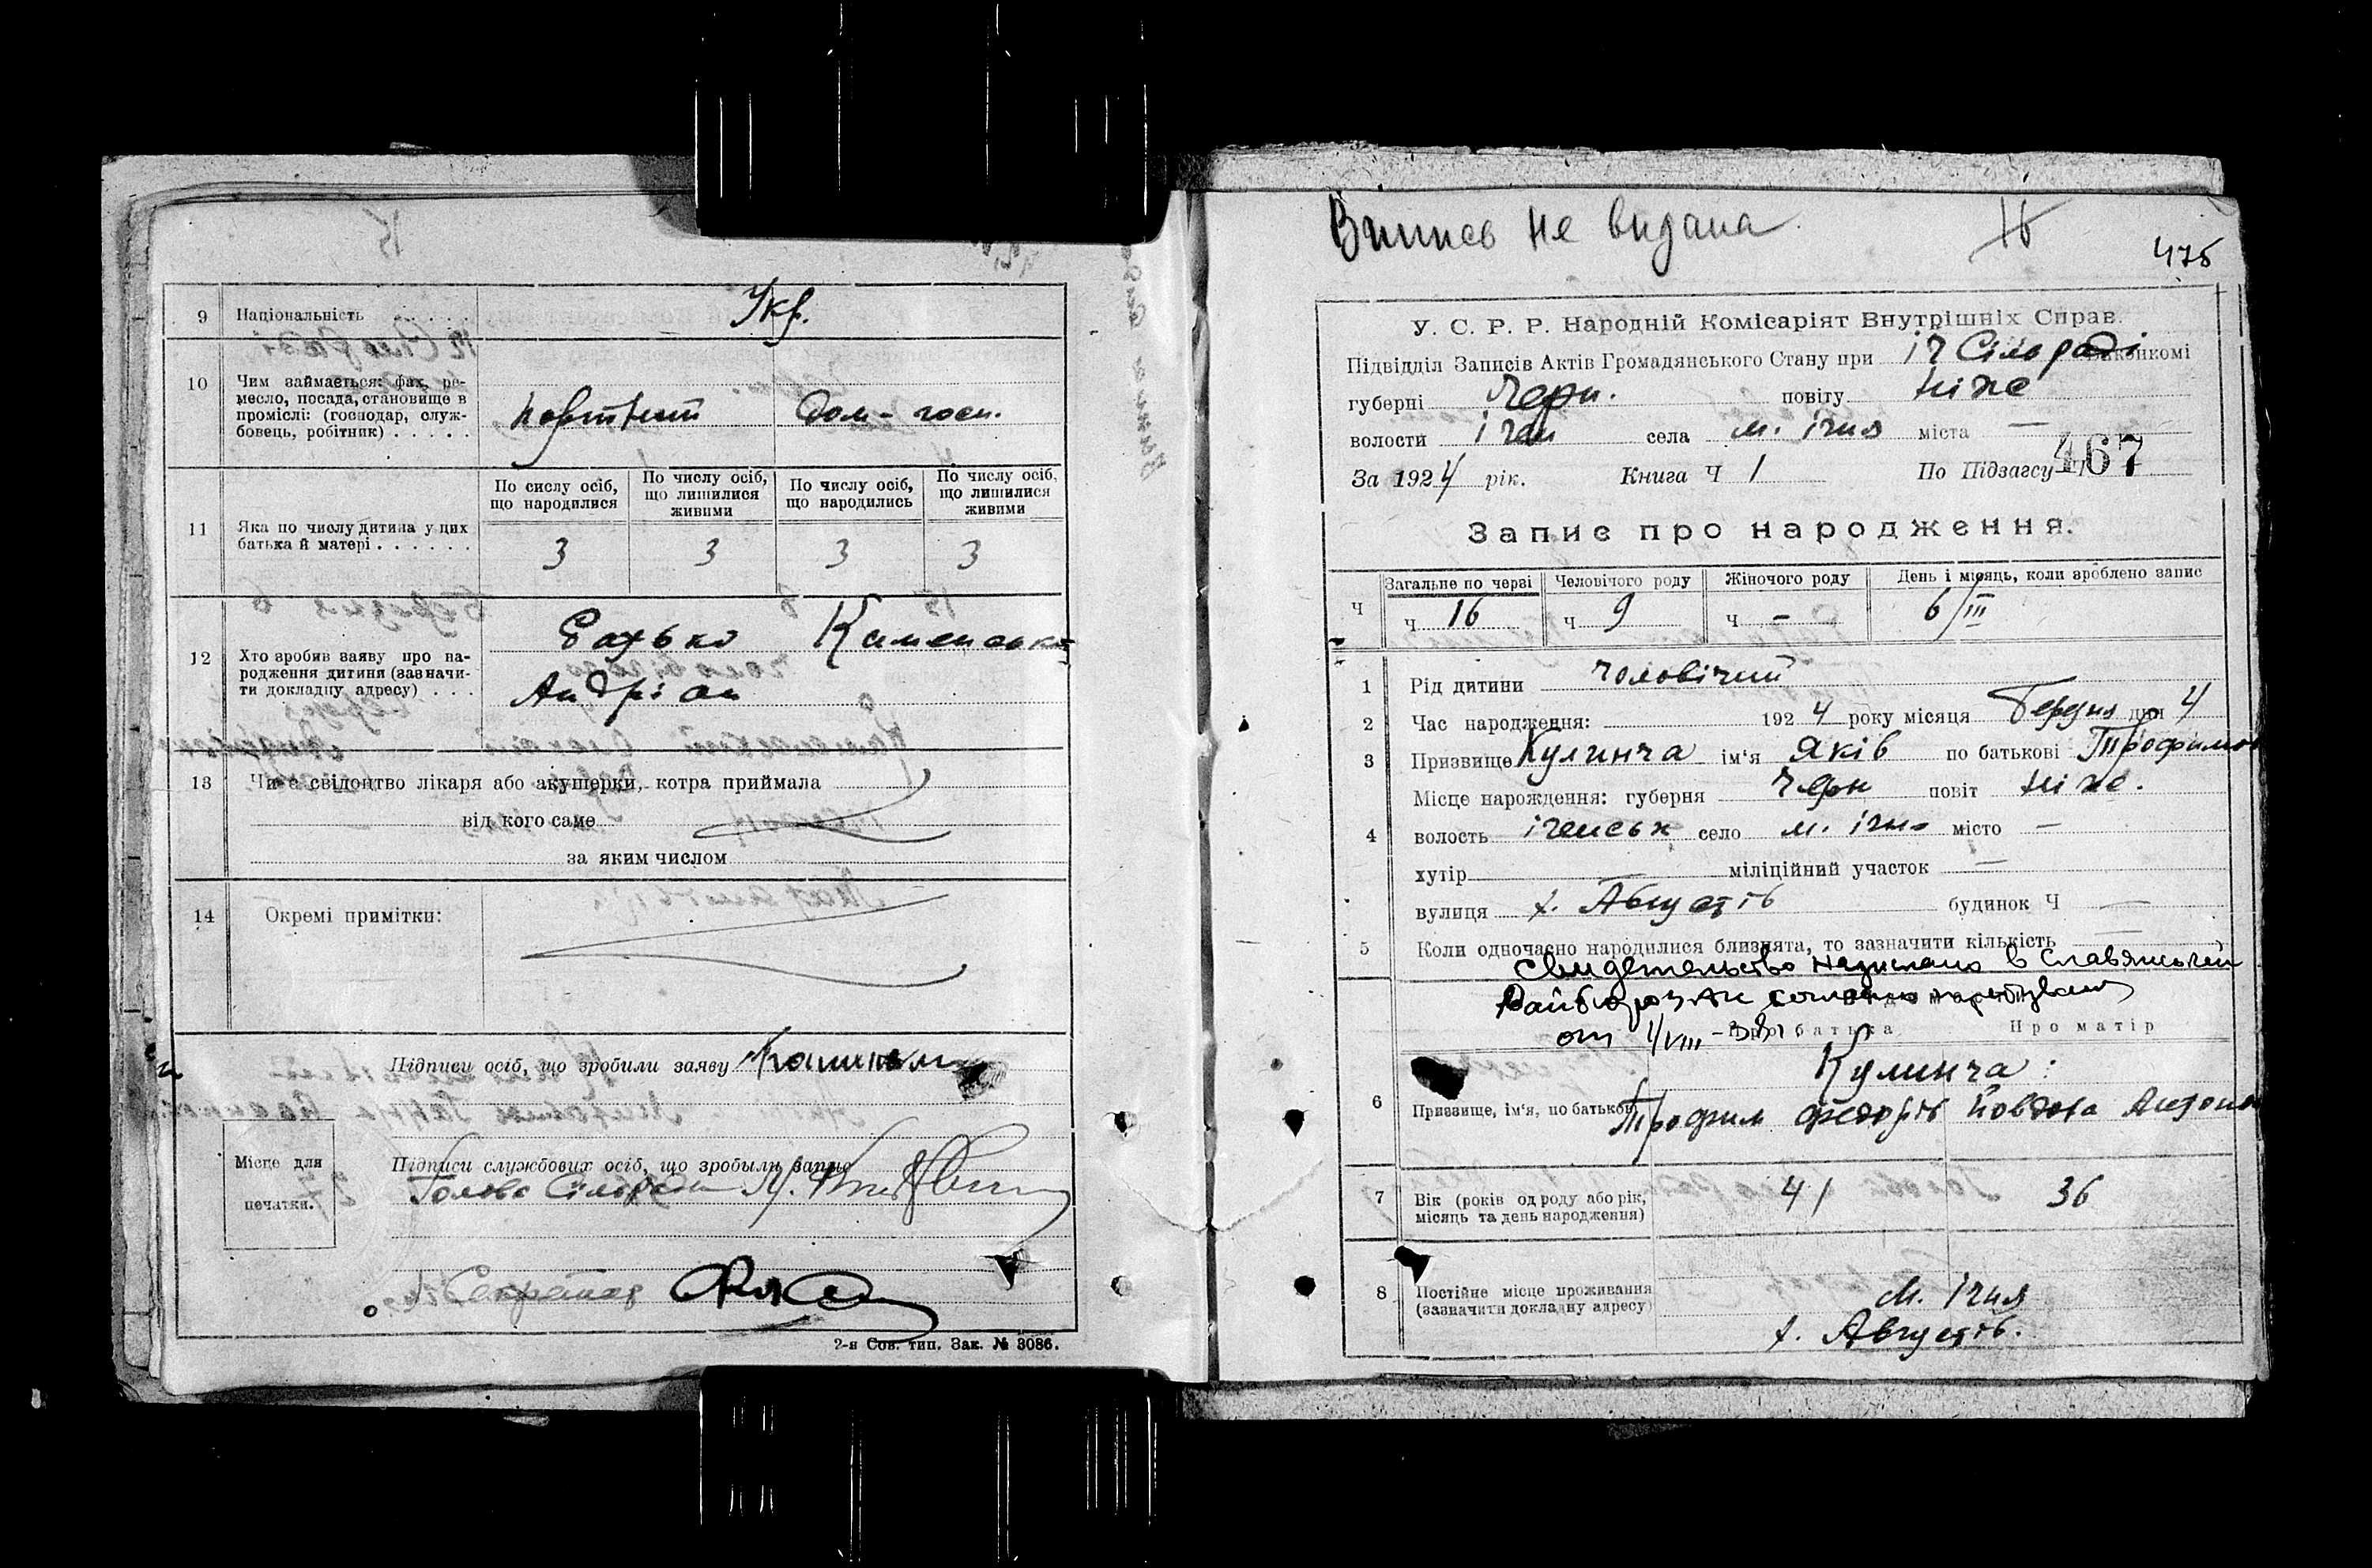 9 Національність Укр.
10 Чим займається: фах, ре-
месло, посада, становище в
проміслі: (господар, служ-
бовець, робітник)
дом-госп.
По сислу осіб, що народилися
По числу осіб, що лишилися живими
По числу осіб, що народились
По числу осіб, що лишилися живими
11 Яка по числу дитина у цих
батька й матері
3 3 3 3
12 Хто зробив заяву про на-
родження дитини (зазначи-
ти докладну адресу)
Батько Каменськ
Андріан
13 Чи є свідоцтво лікаря або акушерки, котра приймала
від кого саме
за яким числом
14 Окремі примітки:
Підписи осіб, що зробили заяву
Місце для
печатки.
Підписи службових осіб, що зробыли запис
Голова Сільради
Секретар
2-я Сов. тип. Зак. № 3086.
Випись не видана
16
475
У. С. Р. Р. Народній Комісаріят Внутрішніх Справ.
Підвідділ Записів Актів Громадянського Стану при Іч Сільраді виконкомі
губерні Черн. повіту Ніже
волости Ічен села м. Ічня міста —
За 1924 рік. Книга Ч 1 По Підзагсу Ч 467
Запис про народження.
Загальне по черзі Человічого роду Жіночого роду День і місяць, коли зроблено запис
Ч Ч 16 Ч 9 Ч — 6/III
1 Рід дитини Чоловічий
2 Час народження: 1924 року місяця Березня дня 4
3 Призвище Кулинча ім'я Яків по батькові Трофимов
4 Місце нарождення: губерня Черн повіт Ніже.
волость Іченськ село м. Ічня місто —
хутір — міліційний участок —
вулиця х. Августів будинок Ч —
5 Коли одночасно народилися близнята, то зазначити кількість —
Свидетельство в Славянский
Райбюро ЗАГС
от 1/VIII-38
Про батька Про матір
Кулинча:
6 Призвище, ім'я, по батькові Трофим Федорів Йовдоха Антонов
7 Вік (років од роду або рік,
місяць та день народження)
41 36
8 Постійне місце проживання
(зазначити докладну адресу)
м. Ічня
х. Августів.